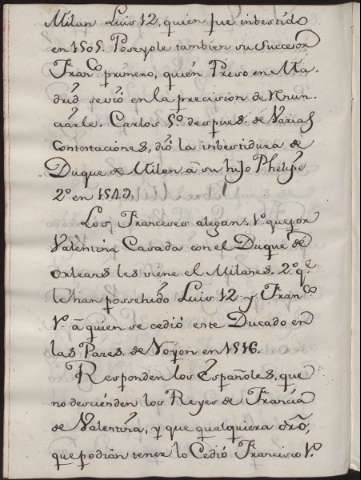 Milan Luis 12, quien fue imbestido
en 1505. Poseyole tambien su Succesor
Franco primero, quien Preso en Ma-
drid se vió en la precision de Renun-
ciarle. Carlos 5.º despues de Varias
Contestaciones, dió la imbestidura de
Duque de Milan à su hijo Phelipe
2º en 1549.
Los Franceses alegan: 1.º que por
Valentina Casada con el Duque de
Orleans les viene el Milanes. 2.º q.e
le han posehido Luis 12 y Fran.co
1º à quien se cedió este Ducado en
las Pases de Noyon en 1516.
Responden los Españoles, que
no descienden los Reyes de Francia
de Valentina, y que qualquiera dro,
que podian tener lo Cedió Francisco 1.º